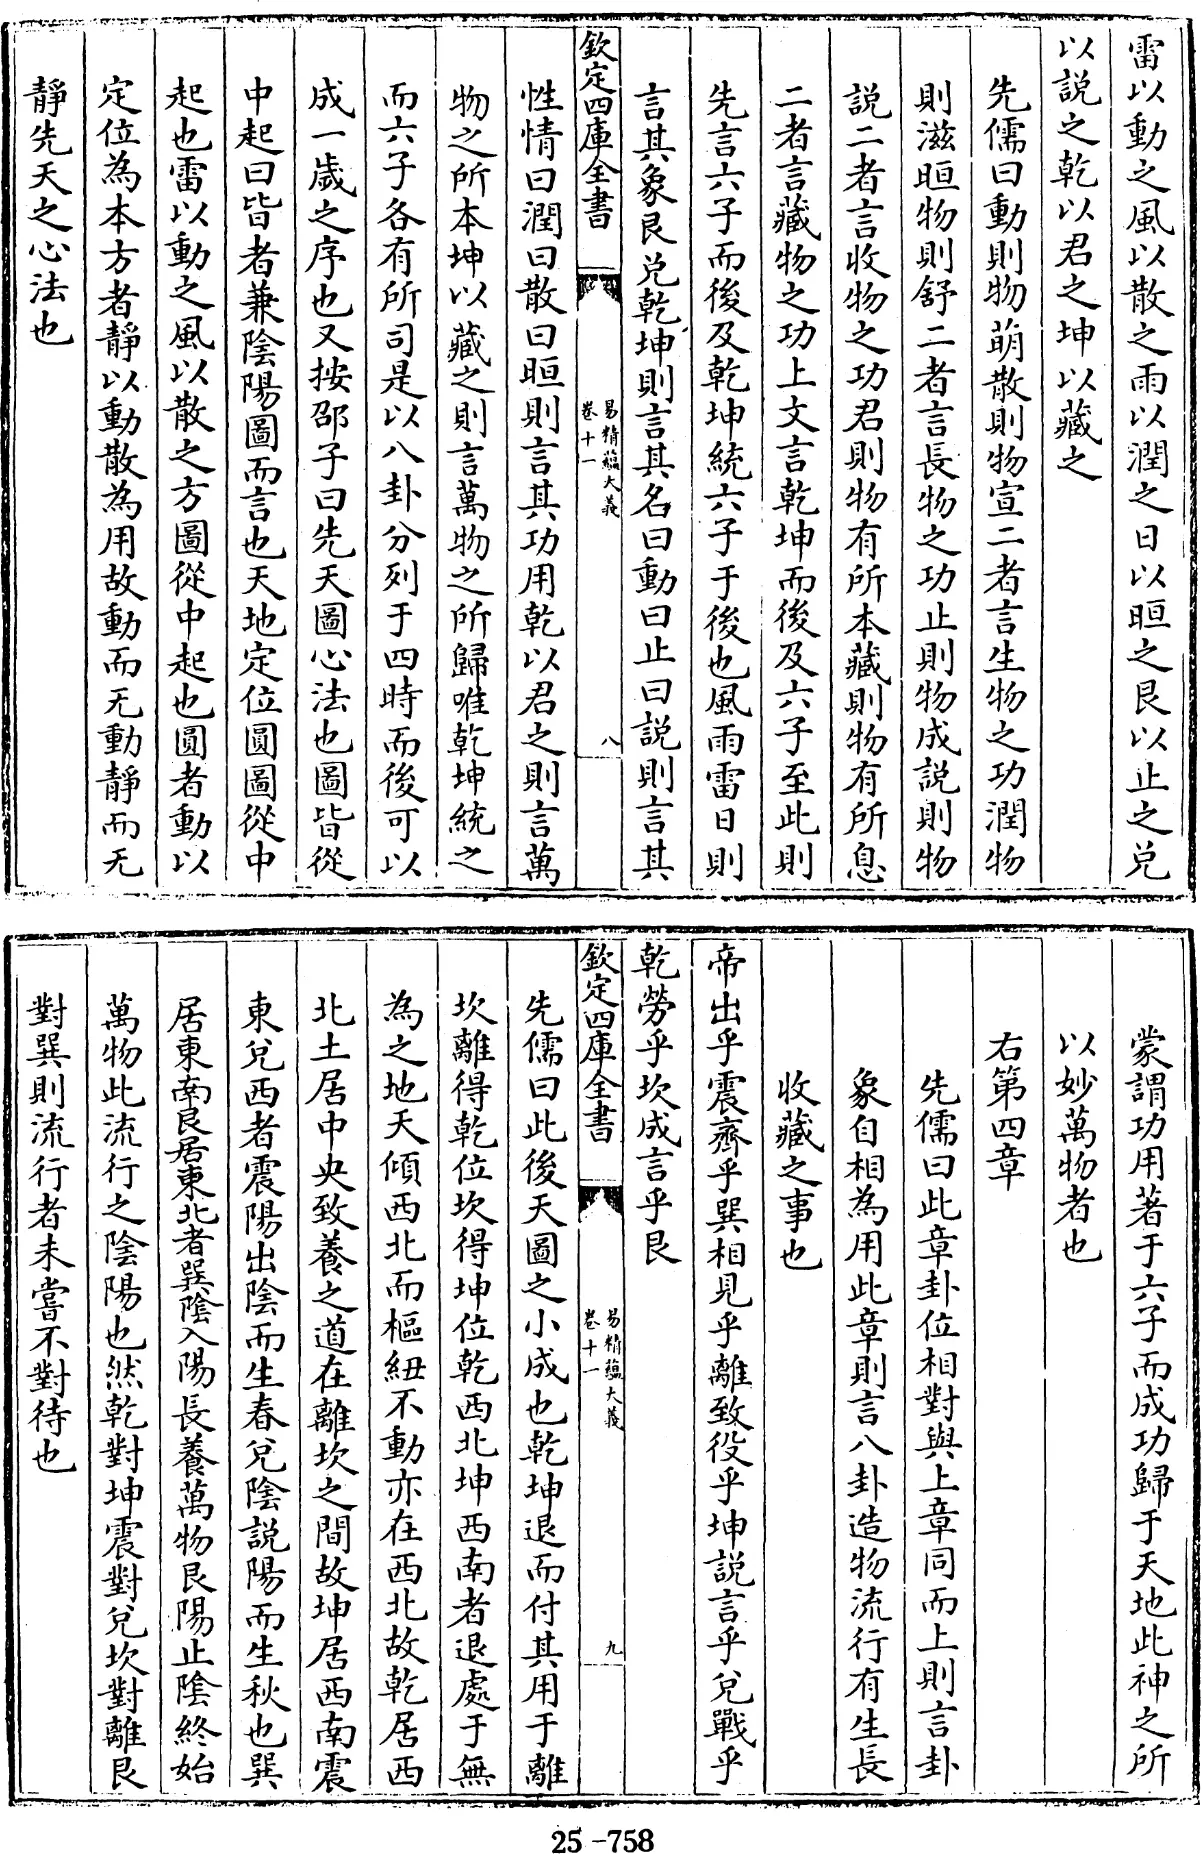 雷以動之風以散之雨以潤之日以晅之艮以止之兑
以説之乾以君之坤以藏之
先儒曰動則物萌散則物宣二者言生物之功潤物
則滋晅物則舒二者言長物之功止則物成説則物
説二者言收物之功君則物有所本藏則物有所息
二者言藏物之功上文言乾坤而後及六子至此則
先言六子而後及乾坤統六子于後也風雨雷日則
言其象艮兑乾坤則言其名曰動曰止曰説則言其
欽定四庫全書
易精蘊大義
卷十一
八
性情曰潤曰散曰晅則言其功用乾以君之則言萬
物之所本坤以藏之則言萬物之所歸唯乾坤統之
而六子各有所司是以八卦分列于四時而後可以
成一歲之序也又按邵子曰先天圖心法也圖皆從
中起曰皆者兼陰陽圖而言也天地定位圓圖從中
起也雷以動之風以散之方圖從中起也圓者動以
定位為本方者靜以動散為用故動而无動靜而无
靜先天之心法也
蒙謂功用著于六子而成功歸于天地此神之所
以妙萬物者也
右第四章
先儒曰此章卦位相對與上章同而上則言卦
象自相為用此章則言八卦造物流行有生長
收藏之事也
帝出乎震齊乎巽相見乎離致役乎坤説言乎兑戰乎
乾勞乎坎成言乎艮
欽定四庫全書
易精蘊大義
卷十一
九
先儒曰此後天圖之小成也乾坤退而付其用于離
坎離得乾位坎得坤位乾西北坤西南者退處于無
為之地天傾西北而樞紐不動亦在西北故乾居西
北土居中央致養之道在離坎之間故坤居西南震
東兑西者震陽出陰而生春兑陰説陽而生秋也巽
居東南艮居東北者巽陰入陽長養萬物艮陽止陰終始
萬物此流行之陰陽也然乾對坤震對兑坎對離艮
對巽則流行者未嘗不對待也
25-758